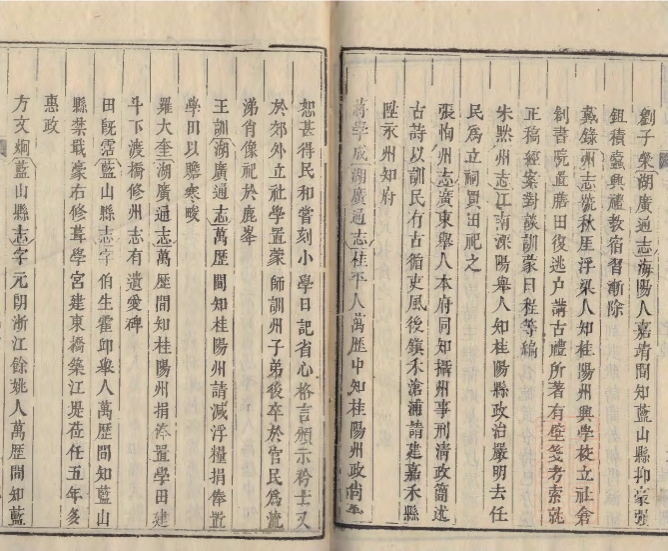 劉子湖廣通志海陽人嘉靖間知藍山縣抑豪强
鉏積蠹興禮教宿習漸除
戴錄州志號秋厓浮梁人知桂陽州興學校立社倉
創書院置膳田復逃户講古禮所著有壁箋考索就
正稿經案對談訓蒙日程等編
朱黙州志江南溧陽舉人知桂陽縣政治嚴明去任
民爲立祠買田祀之
張恂州志廣東舉人本府同知攝州事刑清政簡述
古詩以訓民有古循吏風後鎮禾滄浦請建嘉禾縣
陞永州知府
蔣學成湖廣通志桂平人萬歷中知桂陽州政尚平
恕甚得民和嘗刻小學日記省心格言頒示衿士又
於郊外立社學置蒙師訓州子弟後卒於官民爲流
涕肖像祀於鹿峯
王訓湖廣通志萬歷間知桂陽州請減浮糧捐俸置
學田以贍寒畯
羅大奎湖廣通志萬歷間知桂陽州捐俸置學田建
斗下渡橋修州志有遺愛碑
田旣霑藍山縣志字伯生霍邱舉人萬歷間知藍山
縣禁戢豪右修葺學宮建東橋築江堤莅任五年多
惠政
方文烱藍山縣志字元朗浙江餘姚人萬歷間知藍